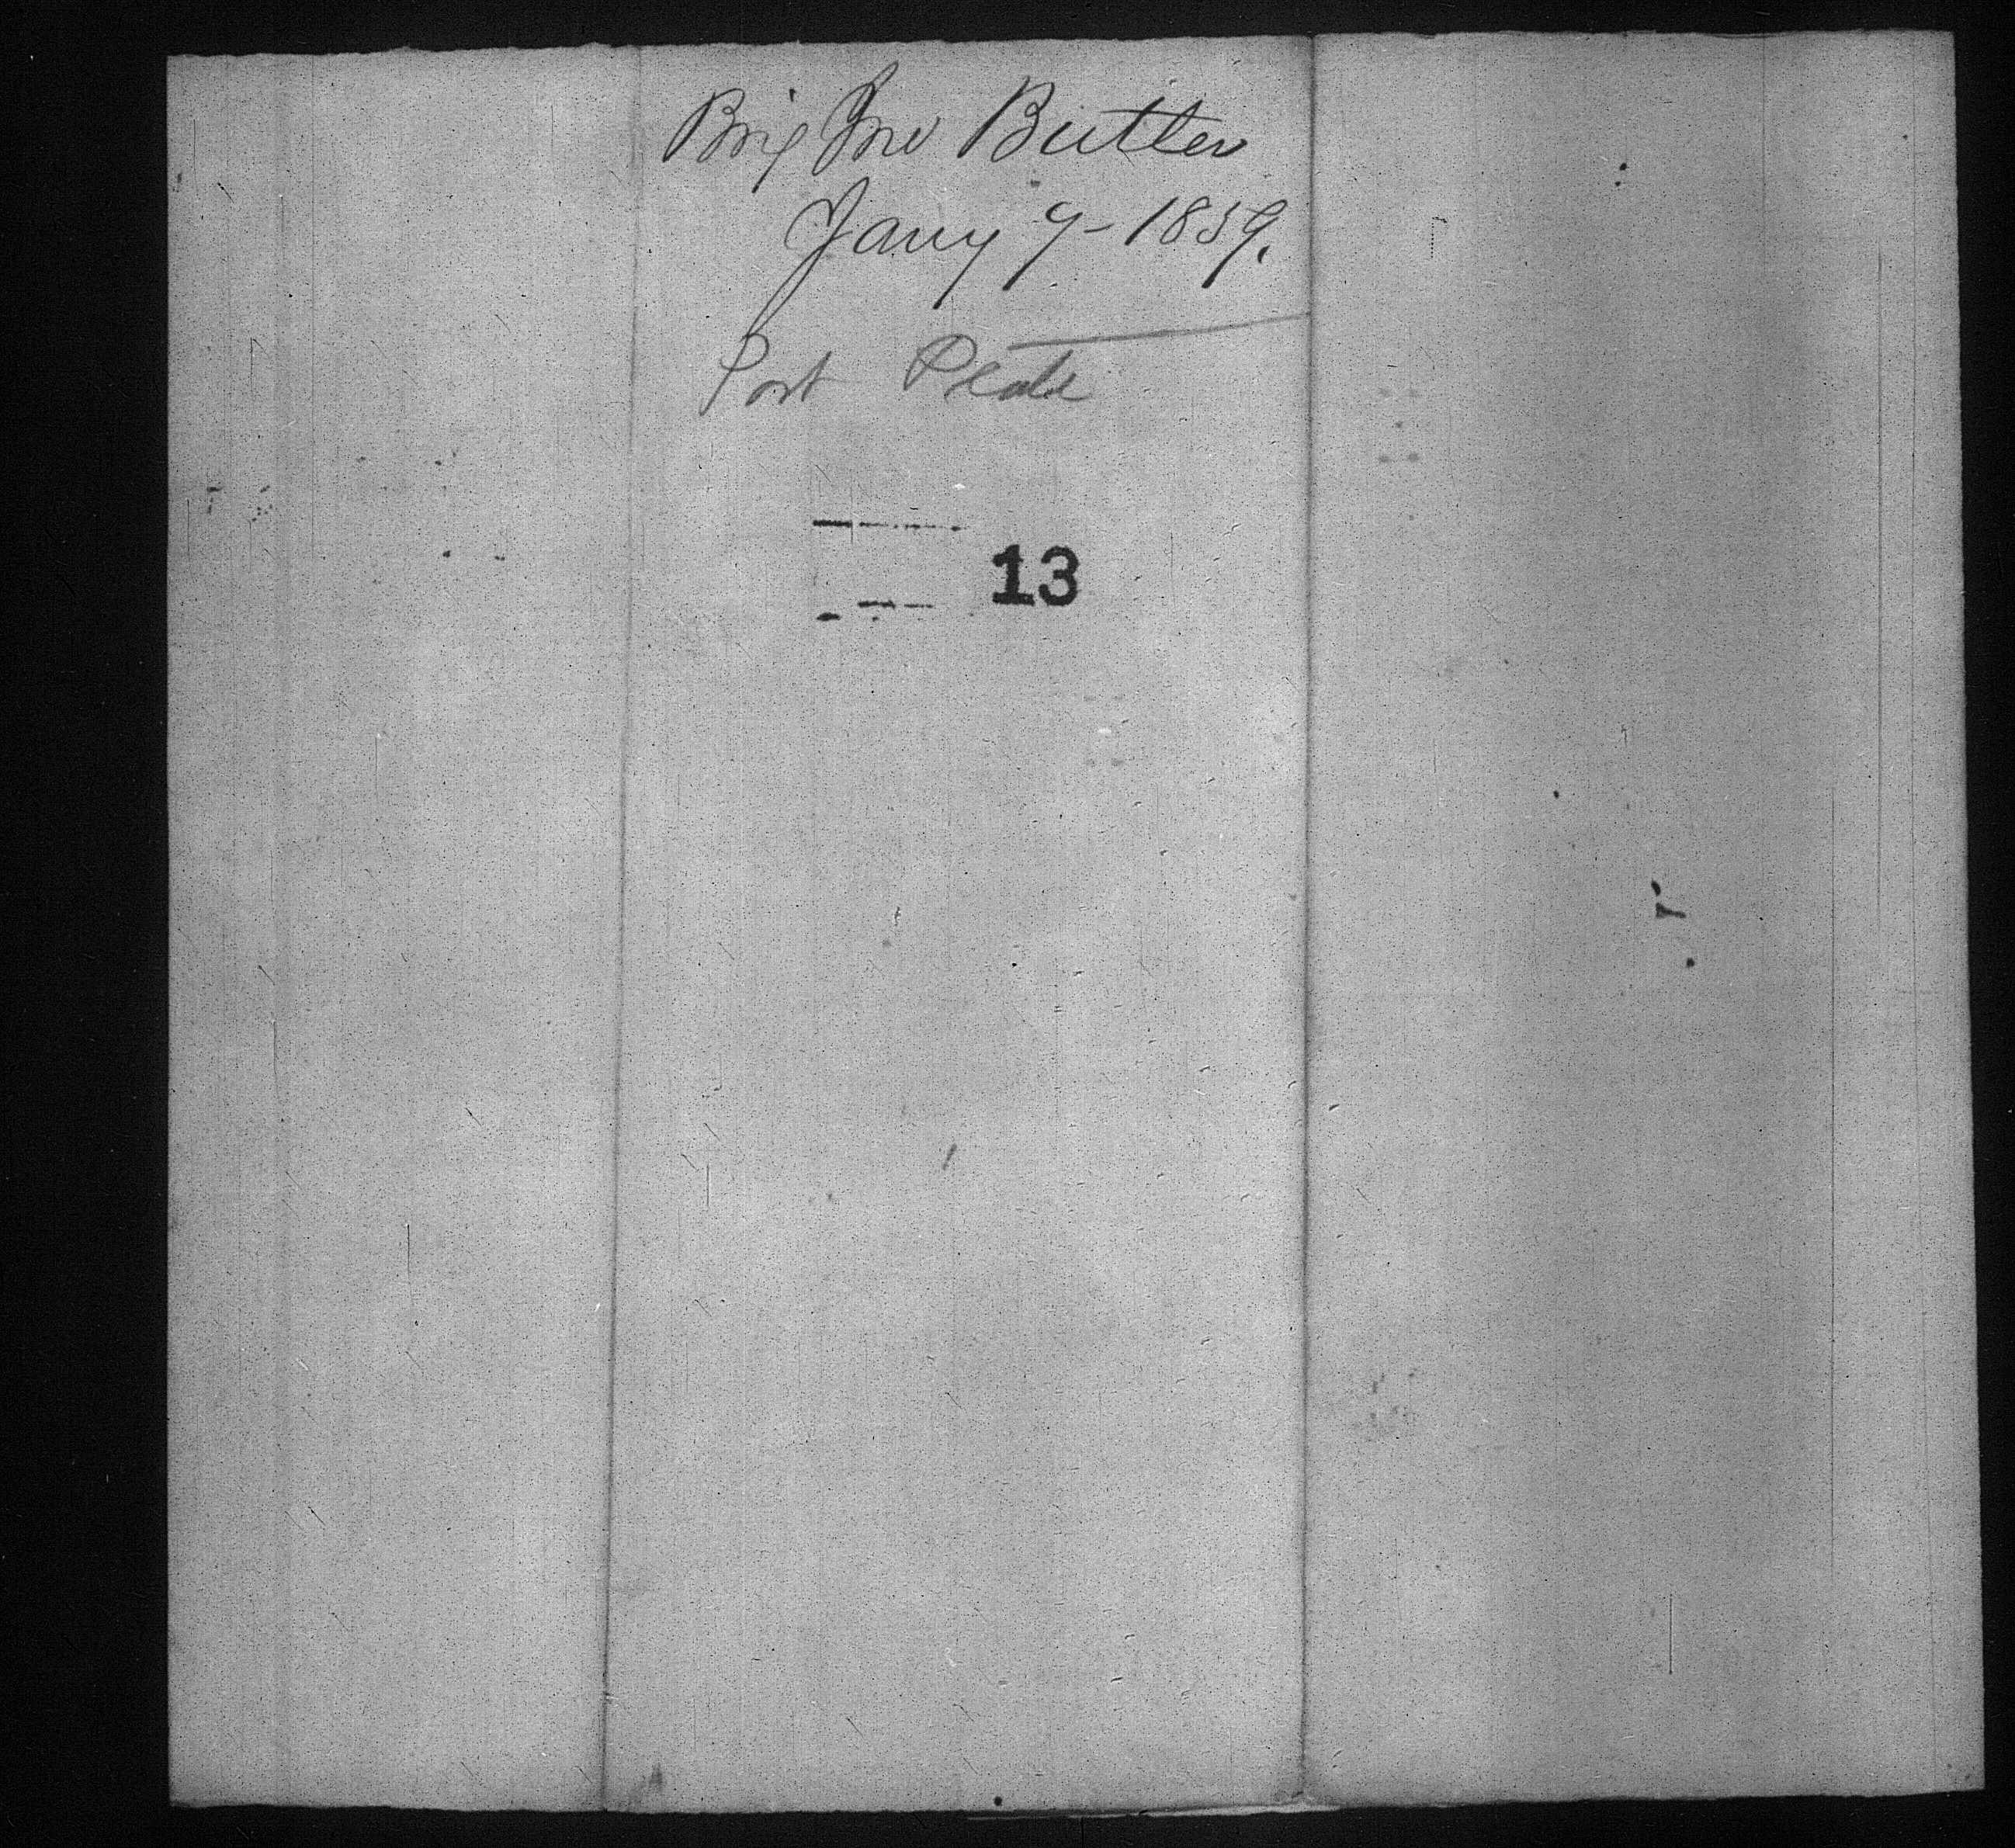 Brig Jno Butler
Jany 7 - 1859.
Port Plate
13